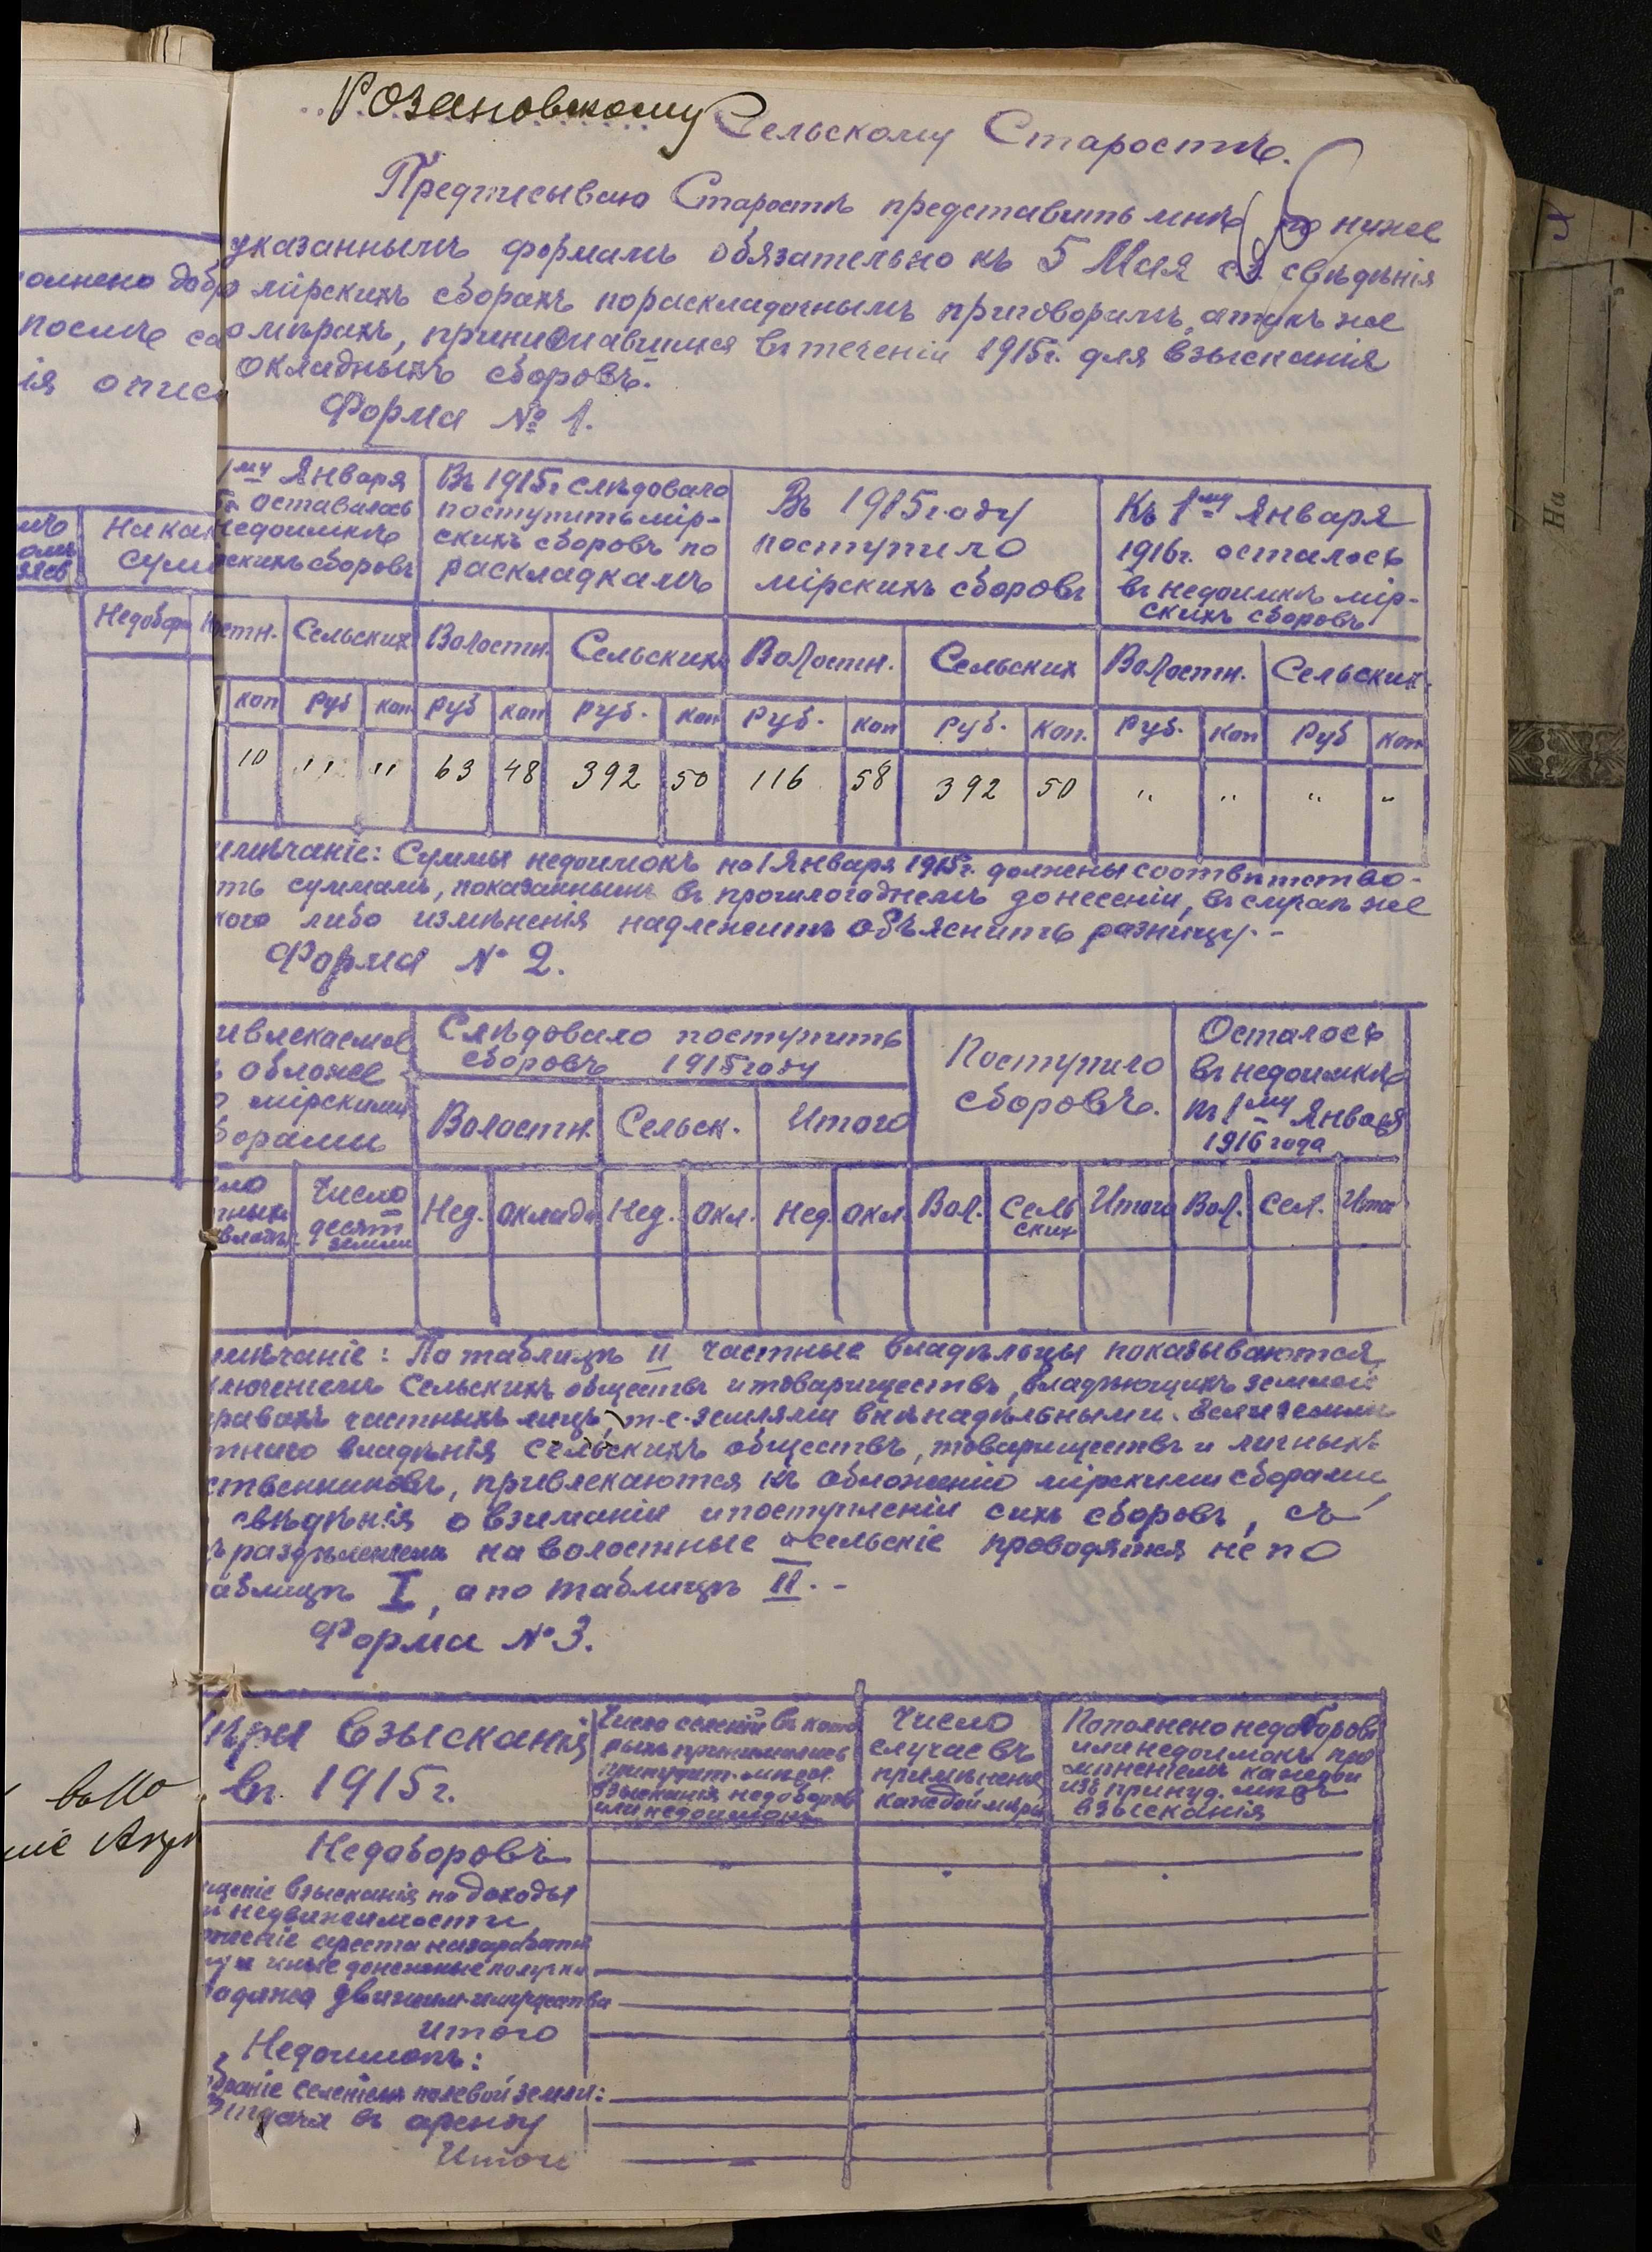 Розановскому Сельскому Старостѣ.
Предписываю Старостѣ представить мнѣ по ниже
указаннымъ формамъ обязательно къ 5 Мая с.г. свѣдѣнія
о мірскихъ сборахъ по раскладочнымъ приговорамъ, а такъ же
о мѣрахъ, принимавшихся въ теченіи 1915 г. для взысканія
окладныхъ сборовъ.
Форма № 1.
1му Января
оставалось
недоимкѣ
скихъ сборовъ
Въ 1915 г слѣдовало
поступить мір-
скихъ сборовъ по
раскладкамъ
Въ 1915 году
поступило
мірскихъ сборовъ
Къ 1му Января
1916 г. осталось
въ недоимкѣ мір-
скихъ сборовъ
стн. Сельскихъ Волостн. Сельскихъ Волостн. Сельских Волостн. Сельских
коп руб коп руб коп руб. коп руб. коп руб. коп. руб. коп руб коп
10 " " 63 48 392 50 116 58 392 50 " " " "
имѣчаніе: Суммы недоимокъ на 1 Января 1915 г. должны соотвѣтство-
ть суммамъ, показаннымъ въ прошлогоднемъ донесеніи, въ случаѣ же
кого либо измѣненія надлежитъ объяснить разницу. -
Форма № 2.
ивлекаемое
обложе
мірскими
борами
Слѣдовало поступить
сборовъ 1915 году
Поступило
сборовъ.
Осталось
въ недоимкѣ
къ 1му Января
1916 года
Волостн. Сельск. Итого
Число
десят
земли
Нед. оклад Нед. окл. Нед. окл. Вол. Сель
ских Итого Вол. Сел. Итог
имѣчаніе: По таблицѣ II частные владѣльцы показываются
ключеніемъ Сельскихъ обществъ и товариществъ, владѣющихъ землей
правахъ частныхъ лицъ, т.е. землями внѣнадѣльными. Если земли
тнаго владѣнія сельскихъ обществъ, товариществъ и личныхъ
ственниковъ, привлекаются къ обложенію мірскими сборами,
свѣдѣнія о взиманіи и поступленіи сихъ сборовъ, съ
раздѣленіемъ на волостные и сельскіе проводятся не по
аблицѣ I, а по таблицѣ II. -
Форма № 3.
ѣры взысканія
въ 1915 г.
Число селеній въ кото
рыхъ принимались
принудит. мѣры
взысканія недоборов
или недоимокъ
Число
случаевъ
примѣнения
каждой мѣры
Пополнено недоборовъ
или недоимокъ при
мѣненіемъ каждой
изъ принуд. мѣръ
взысканія
Недоборовъ
щеніе взысканія на доходы
недвижимости
женіе ареста на заработн
и иные денежные получ
одажа движим. имущества
Итого
Недоимокъ:
браніе селеніемъ полевой земли:
тдача въ аренду
Итого
олнено добр
послѣ са
ія опис
На ка
сум
Недобор
На